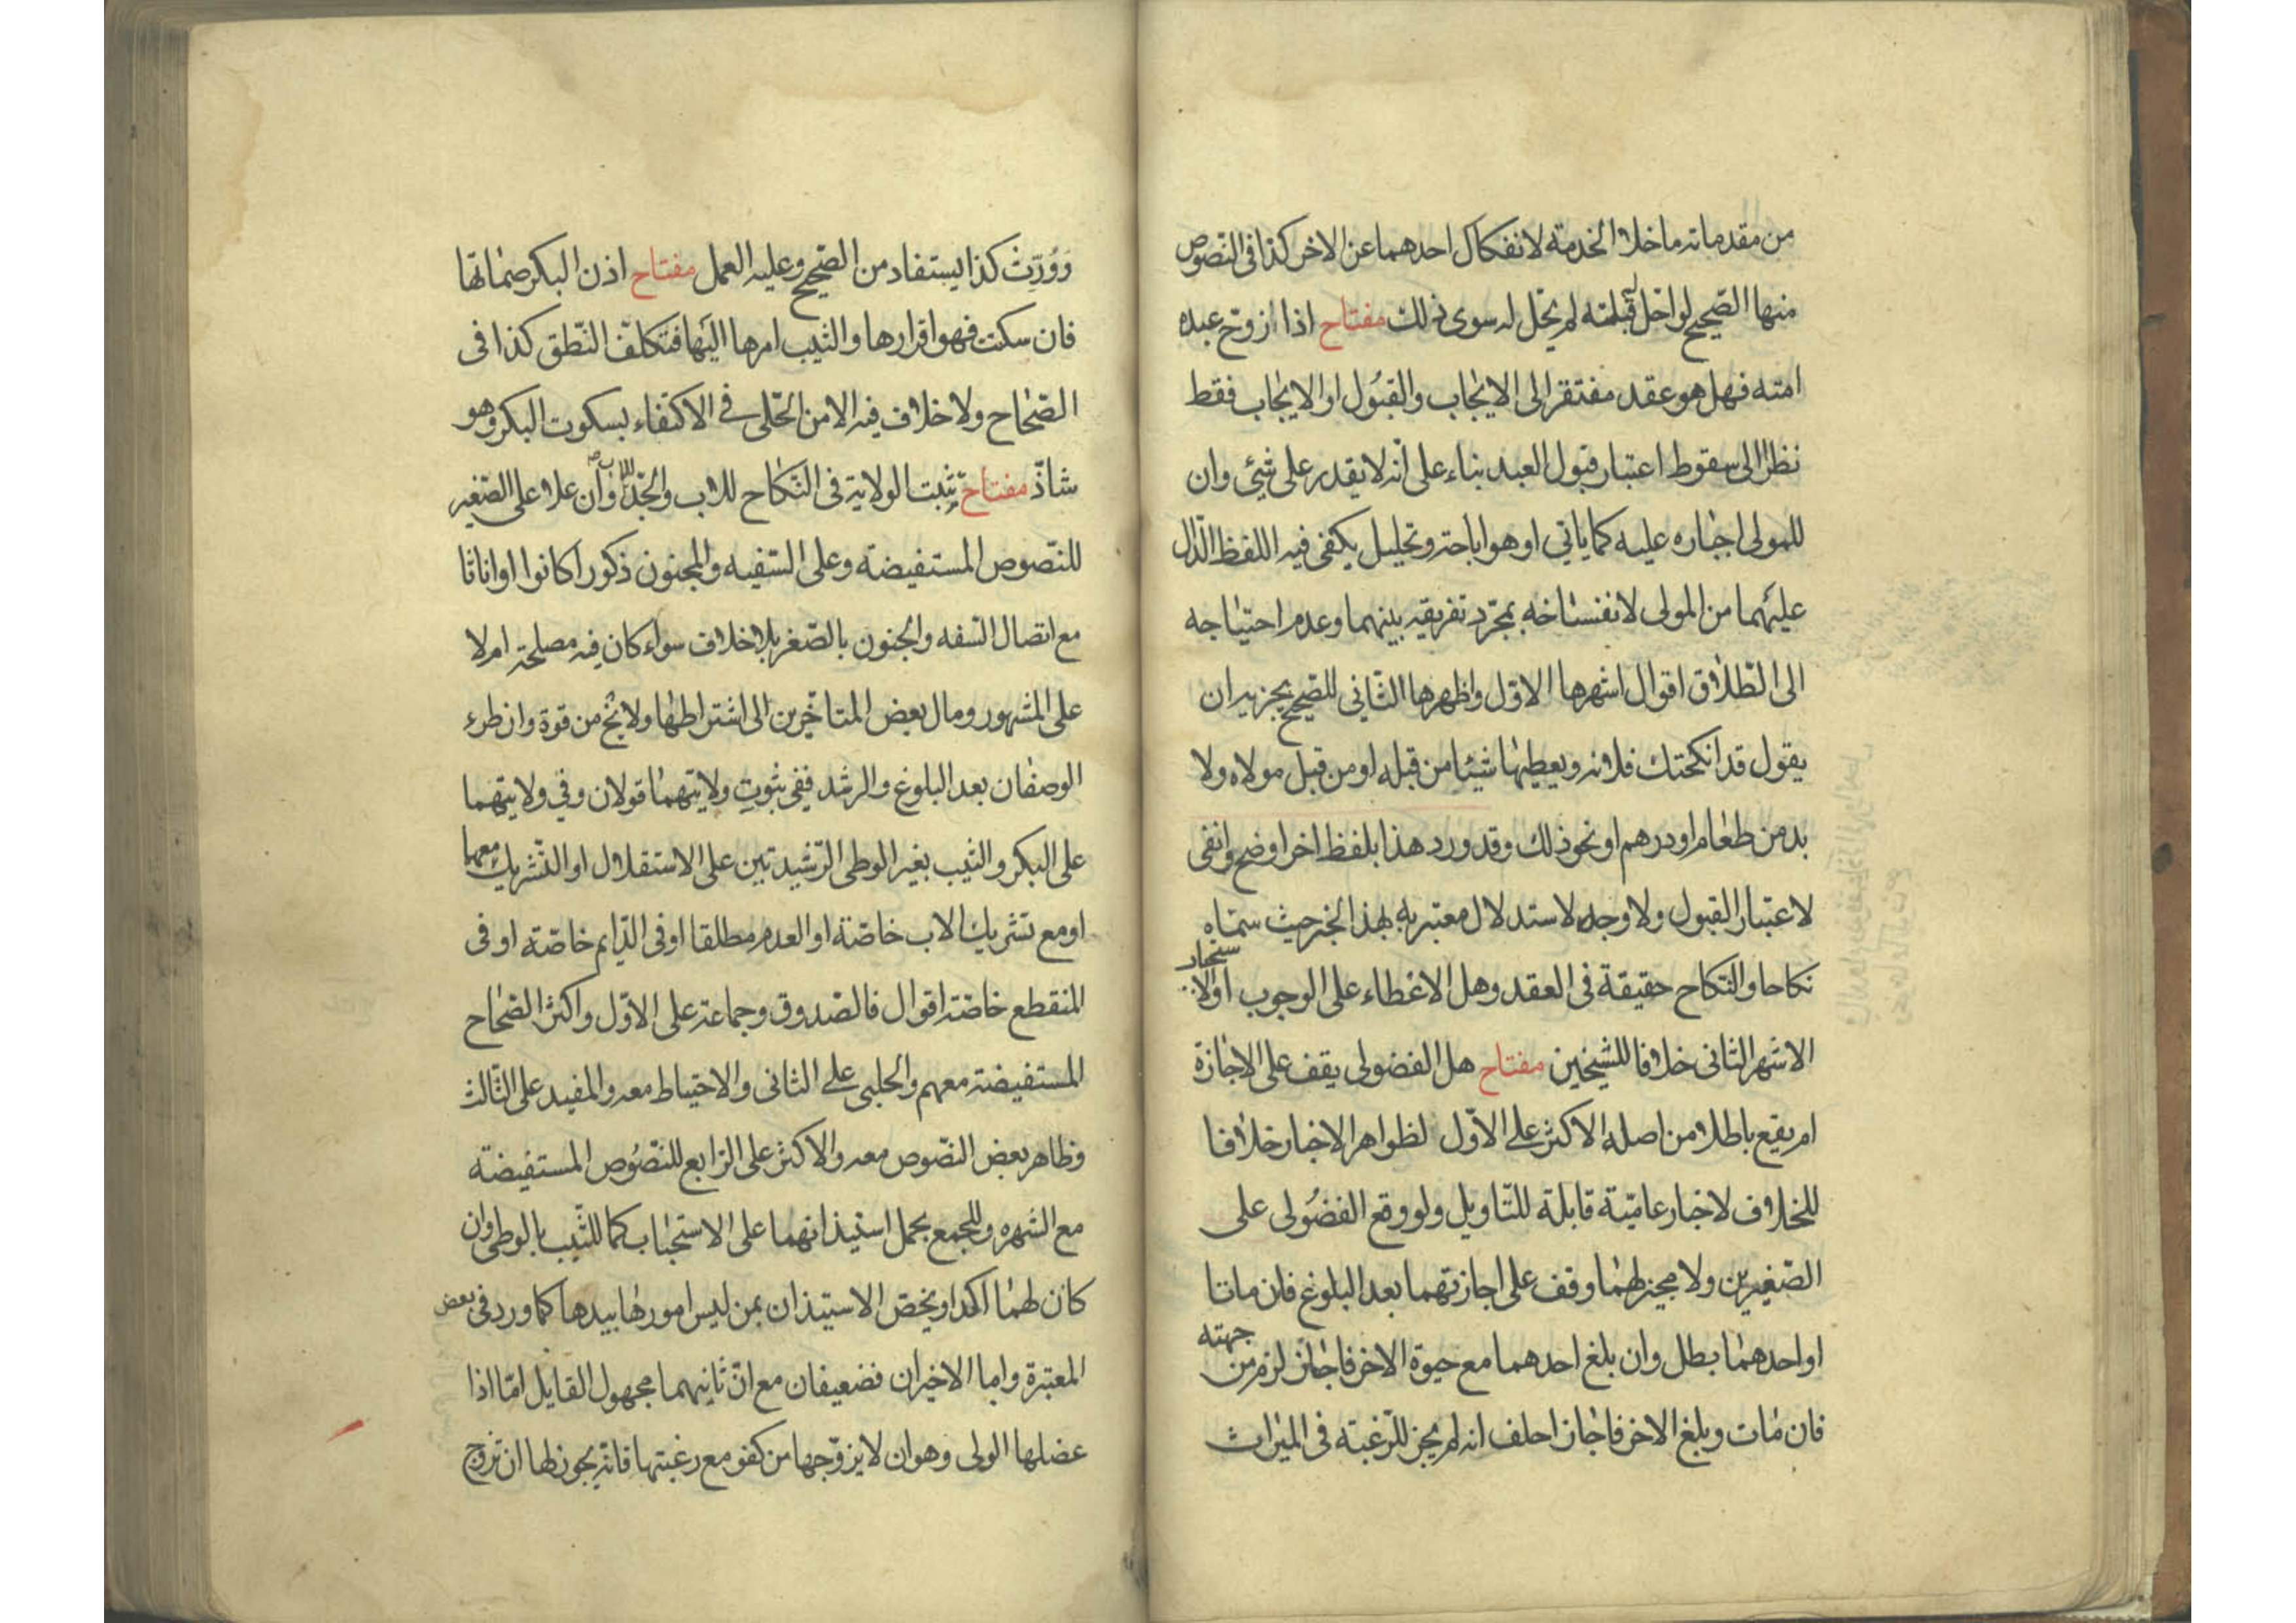 من مقدماته ما خلا الخدمة لانفكاك احدهما عن الاخر كذا فى النصوص
منها الصحيح لو احل له قبلته لم يحل له سوى ذلك مفتاح اذا زوج عبده
امته فهل هو عقد مفتقر الى الايجاب والقبول او الايجاب فقط
نظرا الى سقوط اعتبار قبول العبد بناء على انه لا يقدر على شيئ وان
للمولى اجباره عليه كما ياتي او هو اباحة وتحليل يكفى فيه اللفظ الدال
عليهما من المولى لانفساخه بمجرد تفريقه بينهما وعدم احتياجه
الى الطلاق اقوال اشهرها الاول واظهرها الثانى للصحيح يجزيه ان
يقول قد انكحتك فلانه ويعطيها شيئا من قبله او من قبل مولاه ولا
بد من طعام او درهم او نحو ذلك وقد ورد هذا بلفظ اخر اوضح وانفى
لاعتبار القبول ولا وجه لاستدلال معتبريه بهذا الخبر حيث سماه
نكاحا والنكاح حقيقة فى العقد وهل الاعطاء على الوجوب او لا
الاشهر الثانى خلافا للشيخين مفتاح هل الفضولى يقف على الاجازة
ام يقع باطلا من اصله الاكثر على الاول لظواهر الاخبار خلافا
للخلاف لاخبار عامية قابلة للتاويل ولو وقع الفضولى على
الصغيرين ولا مجيز لهما وقف على اجازتهما بعد البلوغ فان ماتا
او احدهما بطل وان بلغ احدهما مع حيوة الاخر فاجاز لزم من جهته
فان مات وبلغ الاخر فاجاز احلف انه لم يجز للرغبة فى الميراث
وورث كذا يستفاد من الصحيح وعليه العمل مفتاح اذن البكر صماتها
فان سكتت فهو اقرارها والثيب امرها اليها فتكلف النطق كذا فى
الصحاح ولا خلاف فيه الا من الحلى في الاكتفاء بسكوت البكر وهو
شاذ مفتاح يثبت الولاية فى النكاح للاب والجد للاب وان علا على الصغير
للنصوص المستفيضة وعلى السفيه والمجنون ذكورا كانوا او اناثا
مع اتصال السفه والجنون بالصغر بلا خلاف سواء كان فيه مصلحة ام لا
على المشهور ومال بعض المتاخرين الى اشتراطها ولا يخ من قوة وان طرء
الوصفان بعد البلوغ والرشد ففى ثبوت ولايتهما قولان وفي ولايتهما
على البكر والثيب بغير الوطى الرشيدتين على الاستقلال او التشريك معها
او مع تشريك الاب خاصة او العدم مطلقا او فى الدايم خاصة او فى
المنقطع خاصة اقوال فالصدوق وجماعة على الاول واكثر الصحاح
المستفيضة معهم والحلبى على الثانى والاحتياط معه والمفيد على الثالث
وظاهر بعض النصوص معه والاكثر على الرابع للنصوص المستفيضة
مع الشهره وللجمع بحمل استيذانهما على الاستحباب كما للثيب بالوطى وان
كان لهما اكد او يخص الاستيذان بمن ليس امورها بيدها كما ورد فى بعض
المعتبرة واما الاخيران فضعيفان مع ان ثانيهما مجهول القايل اما اذا
عضلها الولى وهو ان لا يزوجها من كفو مع رغبتها فانه يجوز لها ان تزوج